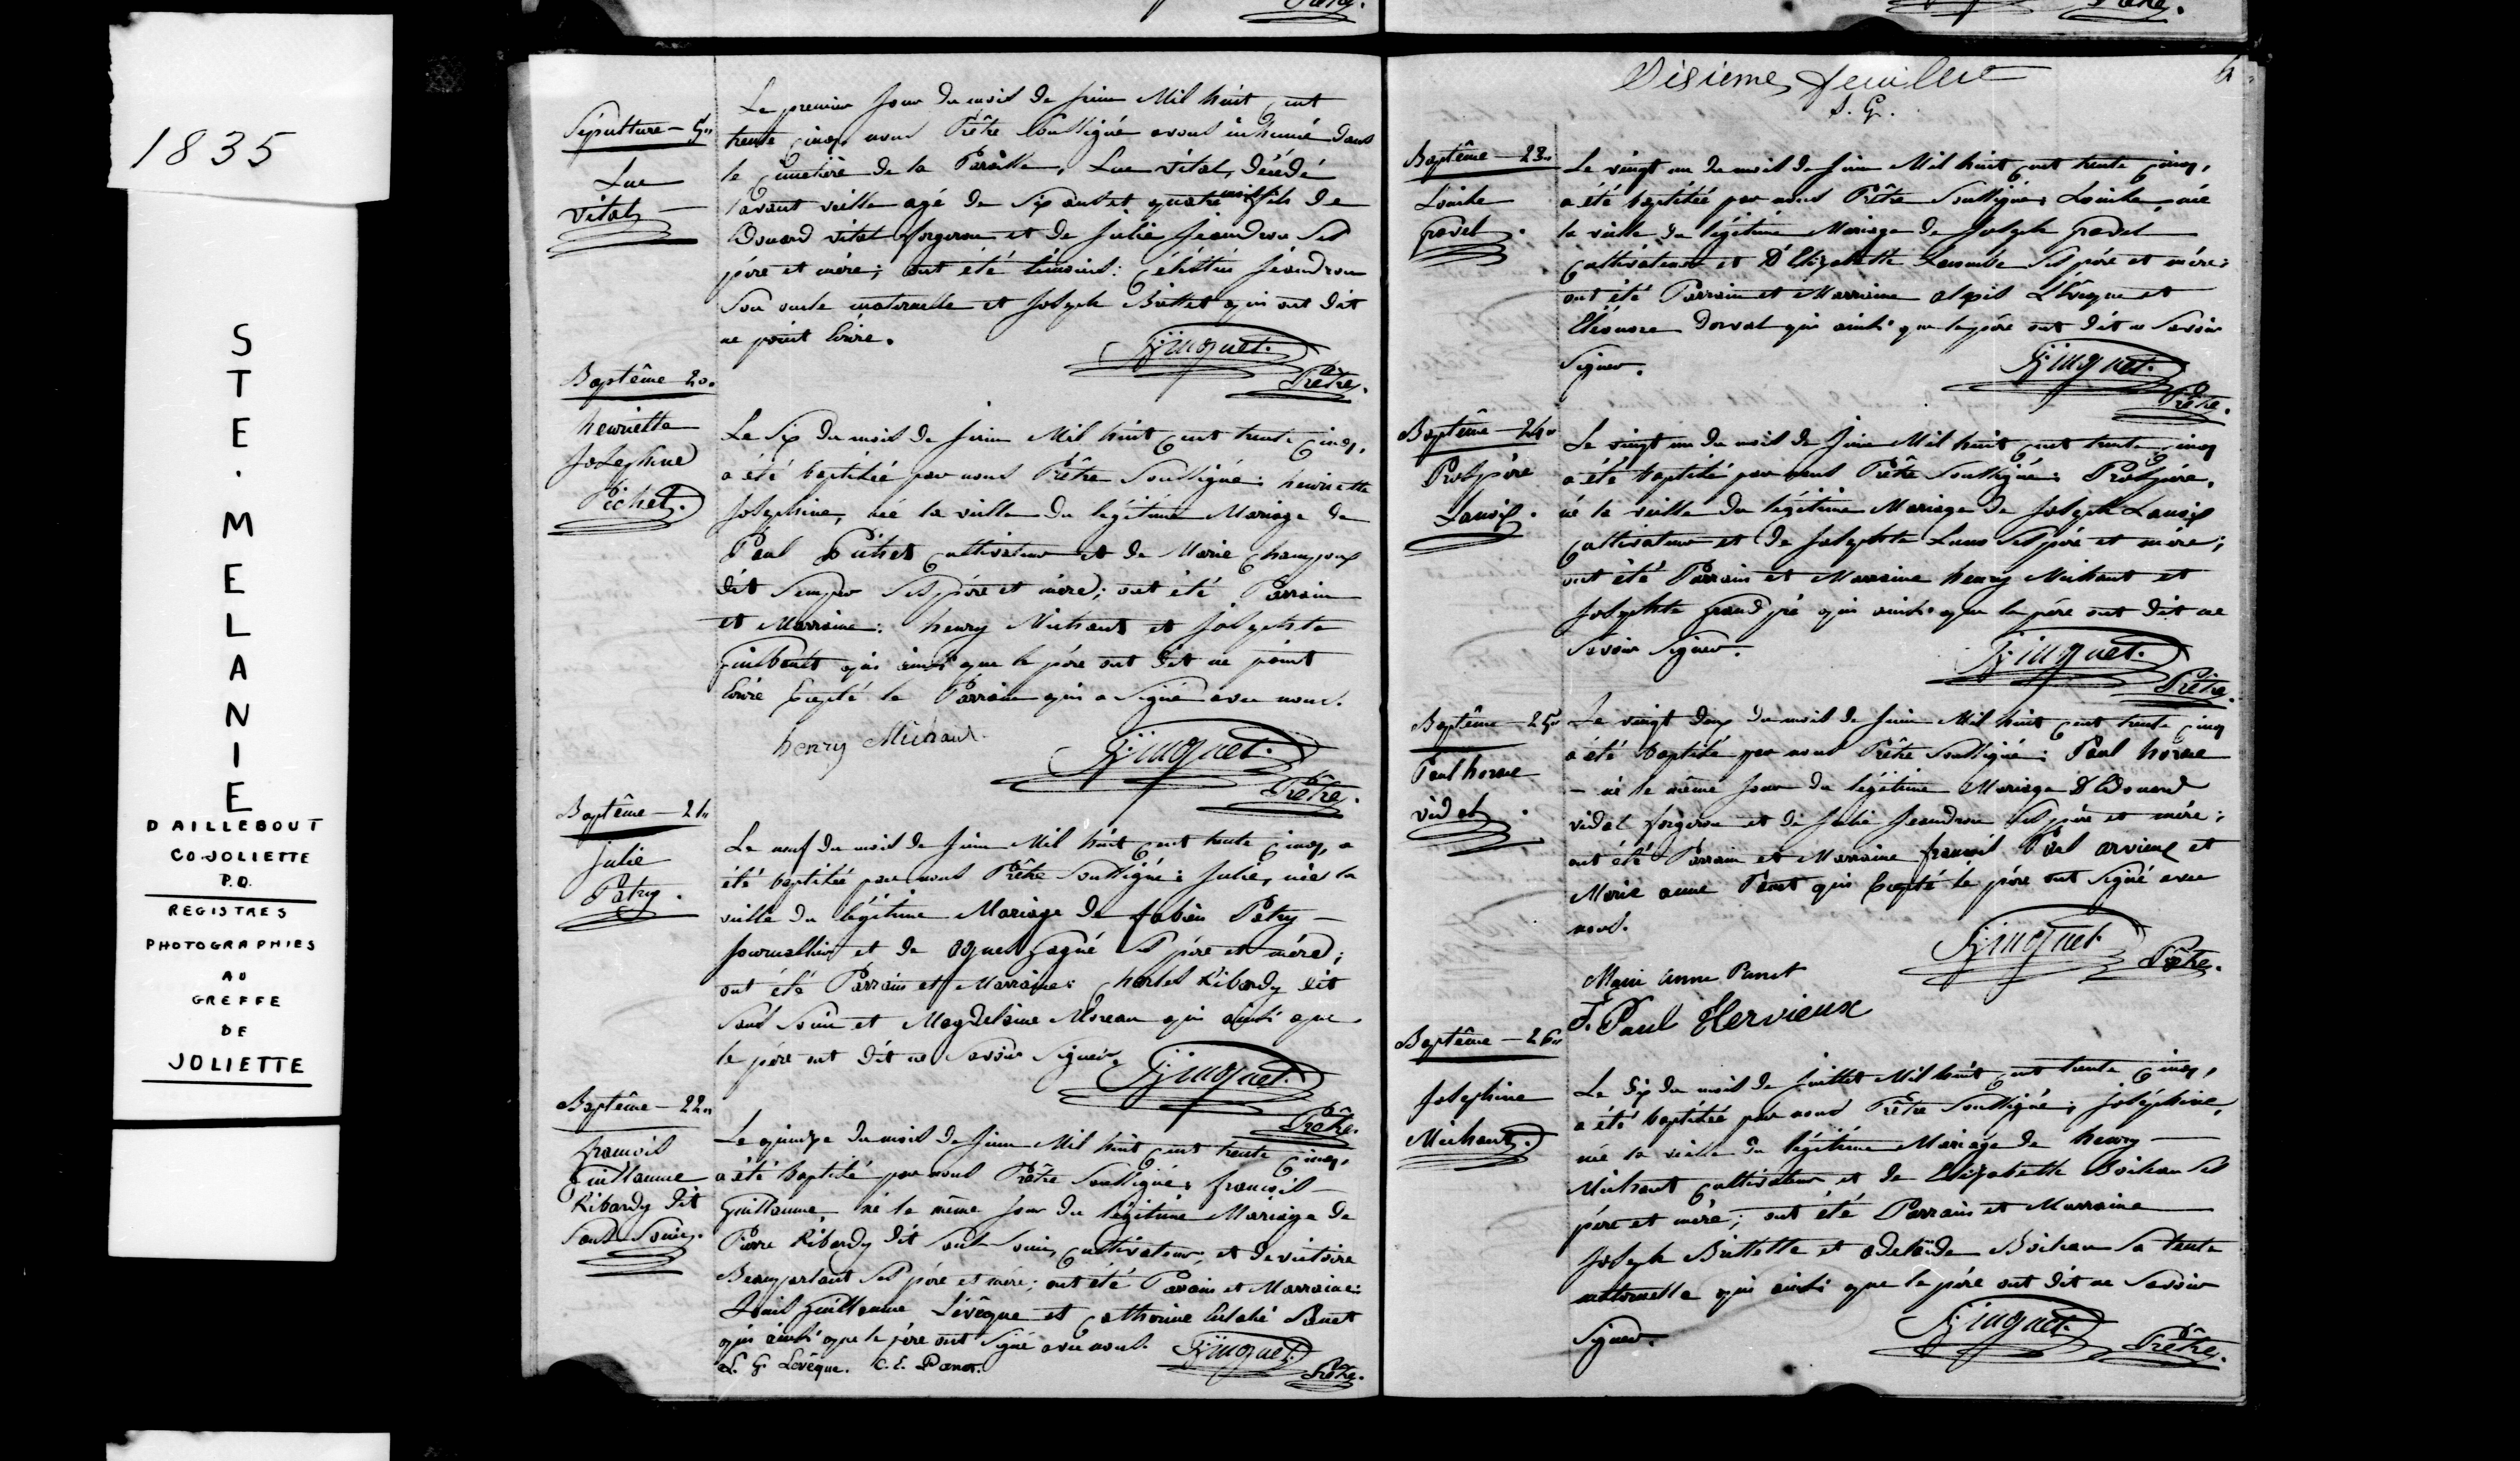 1835
STE. MELANIE
D AILLEBOUT
CO. JOLIETTE
P.Q.
REGISTRES
PHOTOGRAPHIES
AU
GREFFE
DE
JOLIETTE
Sépulture — 5"
Luc
vital
Le premier jour du mois de juin Mil huit cent
trente cinq nous Prêtre Soussigné avons inhumé dans
le cimetière de la Paroisse, Luc vital, décédé
l'avant veille agé de Six ans et quatre mois fils de
Edouard vital forgeron et de Julie Jeandron Ses
père et mère; ont été témoins: Célestin Jeandron
Son oncle maternelle et Joseph Bullet qui ont dit
ne point écrire.
Prêtre.
Baptême 20"
henriette
Josephine
Pichet.
Le Six du mois de juin Mil huit cent trente cinq,
a été baptisée par nous Prêtre Soussigné: henriette
Josephine, née la veille du légitime Mariage de
Paul Pichet cultivateur et de Marie Champoux
dit Ses père et mère; ont été Parrain
et Marraine: henry Michaud et Josephte
Guilbault qui ainsi que le père ont dit ne point
écrire Excepté le Parrain qui a Signé avec nous.
henry Michaud.
Prêtre.
Baptême — 21"
Julie
Patry.
Le neuf du mois de juin Mil huit cent trente cinq, a
été baptisée par nous Prêtre Soussigné: Julie, née la
veille du légitime Mariage de fabien Patry —
Journallier et de agnes Gagné Ses père et mère;
ont été Parrain et Marraine: Charles Ribardy dit
Sans Souci et Magdelaine Moreau qui ainsi que
le père ont dit ne Savoir Signer.
Prêtre.
Baptême — 22"
françois
Guillaume
Ribardy dit
Sans Souci.
Le quinze du mois de juin Mil huit cent trente cinq,
a été baptisé par nous Prêtre Soussigné: françois —
Guillaume né le même jour du légitime Mariage de
Pierre Ribardy dit Sans Souci, cultivateur, et de victoire
Beauparlant Ses père et mère; ont été Parrain et Marraine:
Louis Guillaume Lévêque et Catherine Eulalie Panet
qui ainsi que le père ont Signé avec nous.
L. G. Levêque. C. E. Panet.
Prêtre.
Sisieme feuillet
S. G.
6
Baptême — 23"
Louise
Gadel.
Le vingt un du mois de juin Mil huit cent trente cinq,
a été baptisée par nous Prêtre Soussigné: Louise, née
la veille du légitime Mariage de Joseph
cultivateur et D'Elizabeth Lacombe Ses père et mère;
ont été Parrain et Marraine alexis L'Evêque et
Eléonore Dorval qui ainsi que le père ont dit ne Savoir
Signer.
Prêtre.
Baptême — 24"
Prospère
Lauzis.
Le vingt un du mois de juin Mil huit cent trente cinq
a été baptisé par nous Prêtre Soussigné: Prospère,
né la veille du légitime Mariage de Joseph
cultivateur et de Josephte Ses père et mère;
ont été Parrain et Marraine henry Michaut et
Josephte Grand pré qui ainsi que le père ont dit ne
Savoir Signer.
Prêtre.
Baptême — 25"
Paul horace
vidal.
Le vingt deux du mois de juin Mil huit cent trente cinq
a été baptisé par nous Prêtre Soussigné: Paul horace
— né le même jour du légitime Mariage D'Edouard
vidal forgeron et de Julie Jeandron Ses père et mère;
ont été Parrain et Marraine françois Paul arvieux et
Marie anne Panet qui Excepté le père ont Signé avec
nous.
Prêtre.
Marie Anne Panet
F. Paul Hervieux
Baptême — 26"
Josephine
Michaut.
Le Six du mois de juillet Mil huit cent trente cinq,
a été baptisée par nous Prêtre Soussigné; Joséphine,
née la veille du légitime Mariage de henry —
Michaut cultivateur et de Elizabethe Boileau Ses
père et mère; ont été Parrain et Marraine
Joseph et adelaide Boileau Sa tante
maternelle qui ainsi que le père ont dit ne Savoir
Signer.
Prêtre.